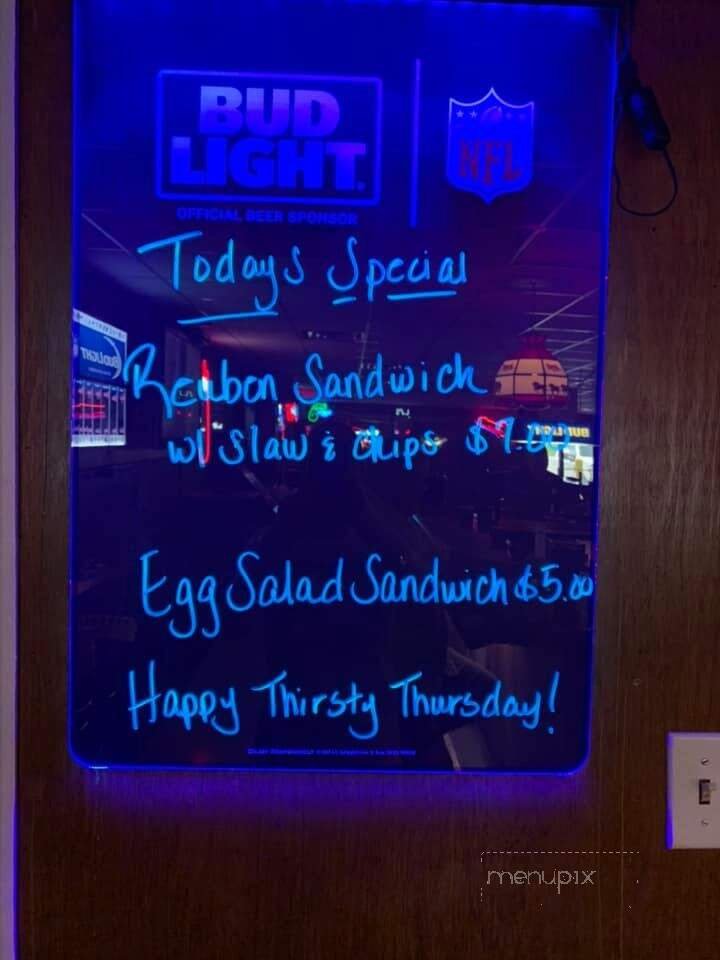 BUD
LIGHT
NFL
OFFICIAL BEER SPONSOR
Todays Special
Reuben Sandwich
w/ Slaw & Chips
Egg Salad Sandwich $5.00
Happy Thirsty Thursday!
menupix